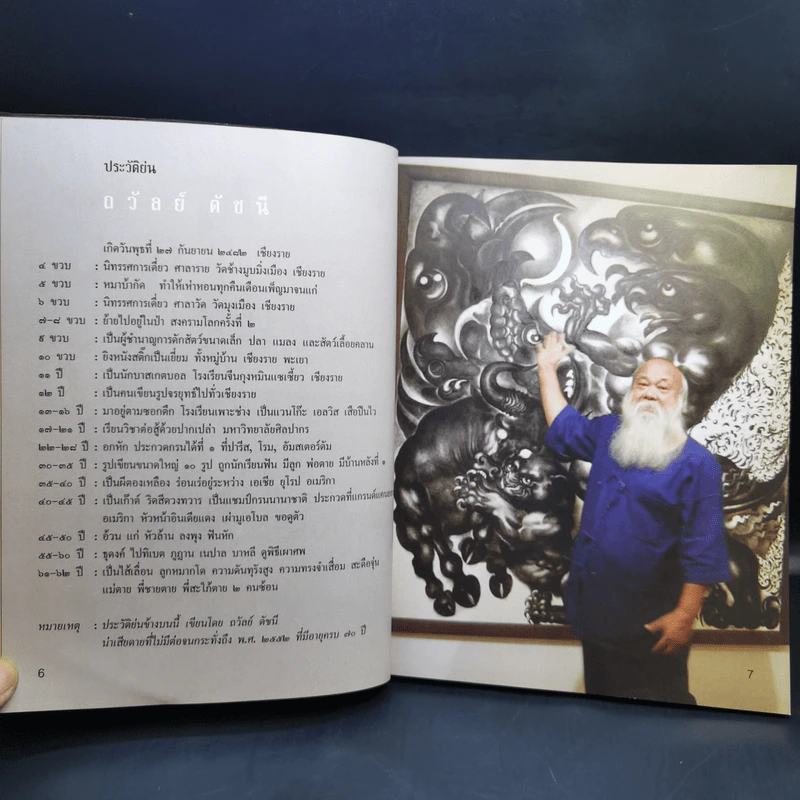 ประวัติย่น
ถวัลย์ ดัชนี
เกิดวันพุธที่ ๒๗ กันยายน ๒๔๘๒ เชียงราย
๔ ขวบ : นิทรรศการเดี่ยว ศาลาราย วัดช้างมูบมิ่งเมือง เชียงราย
๕ ขวบ : หมาบ้ากัด ทำให้เห่าหอนทุกคืนเดือนเพ็ญมาจนแก่
๖ ขวบ : นิทรรศการเดี่ยว ศาลาวัด วัดมุงเมือง เชียงราย
๗-๘ ขวบ : ย้ายไปอยู่ในป่า สงครามโลกครั้งที่ ๒
๙ ขวบ : เป็นผู้ชำนาญการดักสัตว์ขนาดเล็ก ปลา แมลง และสัตว์เลื้อยคลาน
๑๐ ขวบ : ยิงหนังสติ๊กเป็นเยี่ยม ทั้งหมู่บ้าน เชียงราย พะเยา
๑๑ ปี : เป็นนักบาสเกตบอล โรงเรียนจีนกุงหมินแซเซี้ยว เชียงราย
๑๒ ปี : เป็นคนเขียนรูปจรยุทธ์ไปทั่วเชียงราย
๑๓-๑๖ ปี : มาอยู่ตามซอกตึก โรงเรียนเพาะช่าง เป็นแวนโก๊ะ เอลวิส เสือปืนไว
๑๗-๒๑ ปี : เรียนวิชาต่อสู้ด้วยปากเปล่า มหาวิทยาลัยศิลปากร
๒๒-๒๘ ปี : อกหัก ประกวดกรนได้ที่ ๑ ที่ปารีส, โรม, อัมสเตอร์ดัม
๓๐-๓๕ ปี : รูปเขียนขนาดใหญ่ ๑๐ รูป ถูกนักเรียนฟัน มีลูก พ่อตาย มีบ้านหลังที่ ๑
๓๕-๔๐ ปี : เป็นผีตองเหลือง ร่อนเร่อยู่ระหว่าง เอเชีย ยุโรป อเมริกา
๔๐-๔๕ ปี : เป็นเก๊าต์ ริดสีดวงทวาร เป็นแชมป์กรนนานาชาติ ประกวดที่แกรนด์แคนยอน
อเมริกา หัวหน้าอินเดียแดง เผ่ามูเอโบล ขอดูตัว
๔๕-๕๐ ปี : อ้วน แก่ หัวล้าน ลงพุง ฟันหัก
๕๕-๖๐ ปี : ธุดงค์ ไปทิเบต ภูฏาน เนปาล บาหลี ดูพิธีเผาศพ
๖๑-๖๒ ปี : เป็นไส้เลื่อน ลูกหมากโต ความดันทุรังสูง ความทรงจำเสื่อม สะดือจุ่น
แม่ตาย พี่ชายตาย พี่สะใภ้ตาย ๒ คนซ้อน
หมายเหตุ : ประวัติย่นข้างบนนี้ เขียนโดย ถวัลย์ ดัชนี
น่าเสียดายที่ไม่มีต่อจนกระทั่งถึง พ.ศ. ๒๕๕๒ ที่มีอายุครบ ๗๐ ปี
6
7